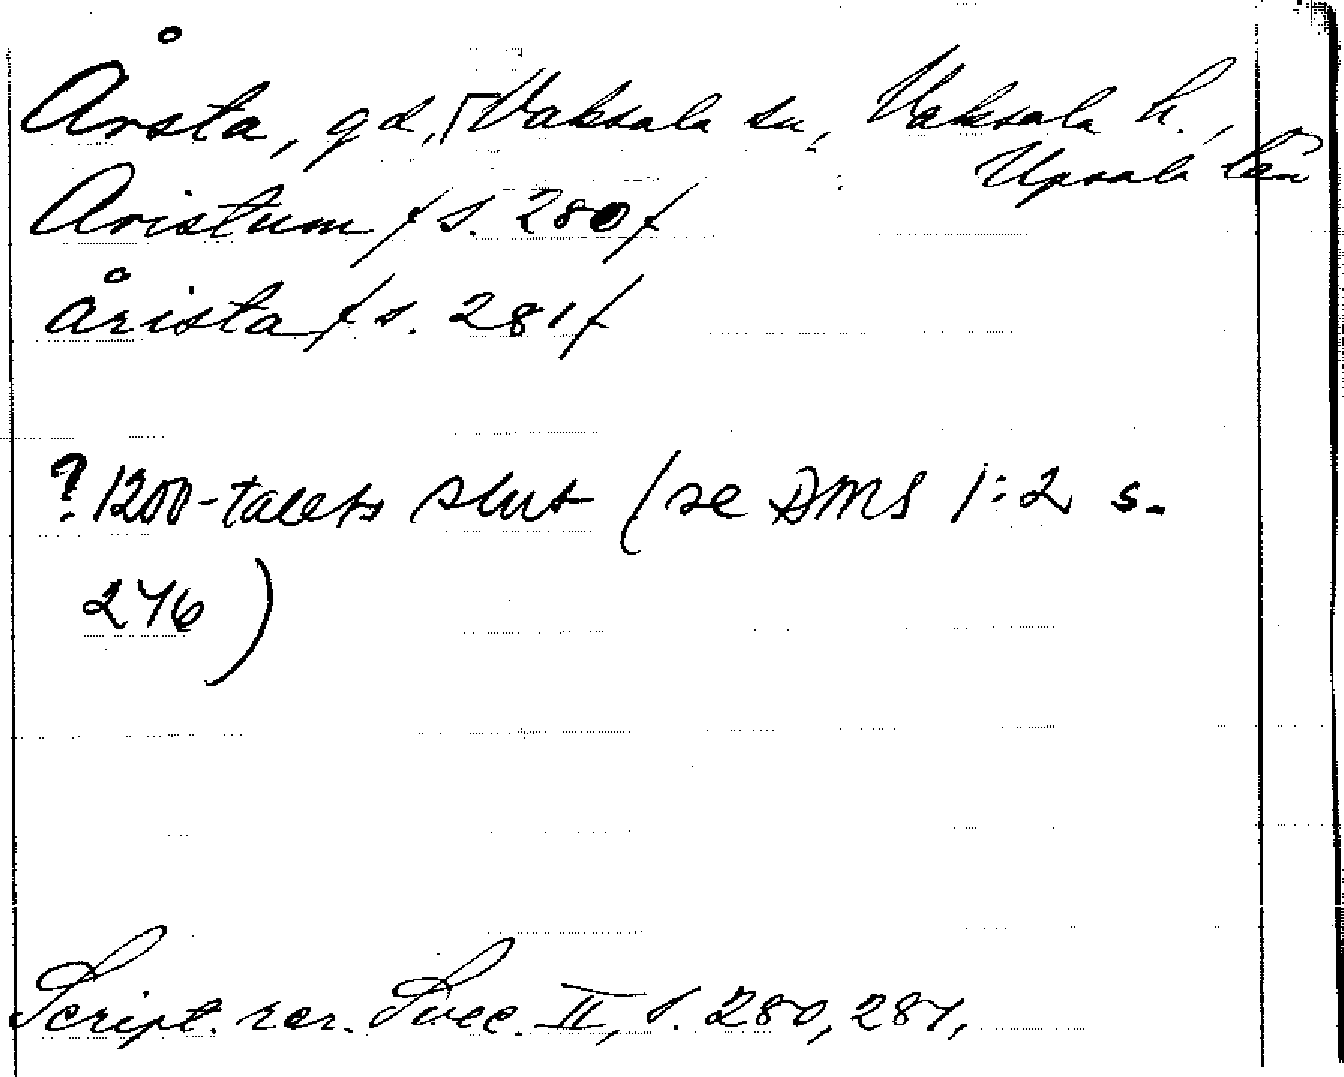 Årsta, gd, Vaksala sn, Vaksala h.,
Upsala län
Aristum /s. 280/
årista /s. 281/
? 1200-talets slut (se DMS 1:2 s.
276)
Script. rer. Svec. II, s. 280, 281,